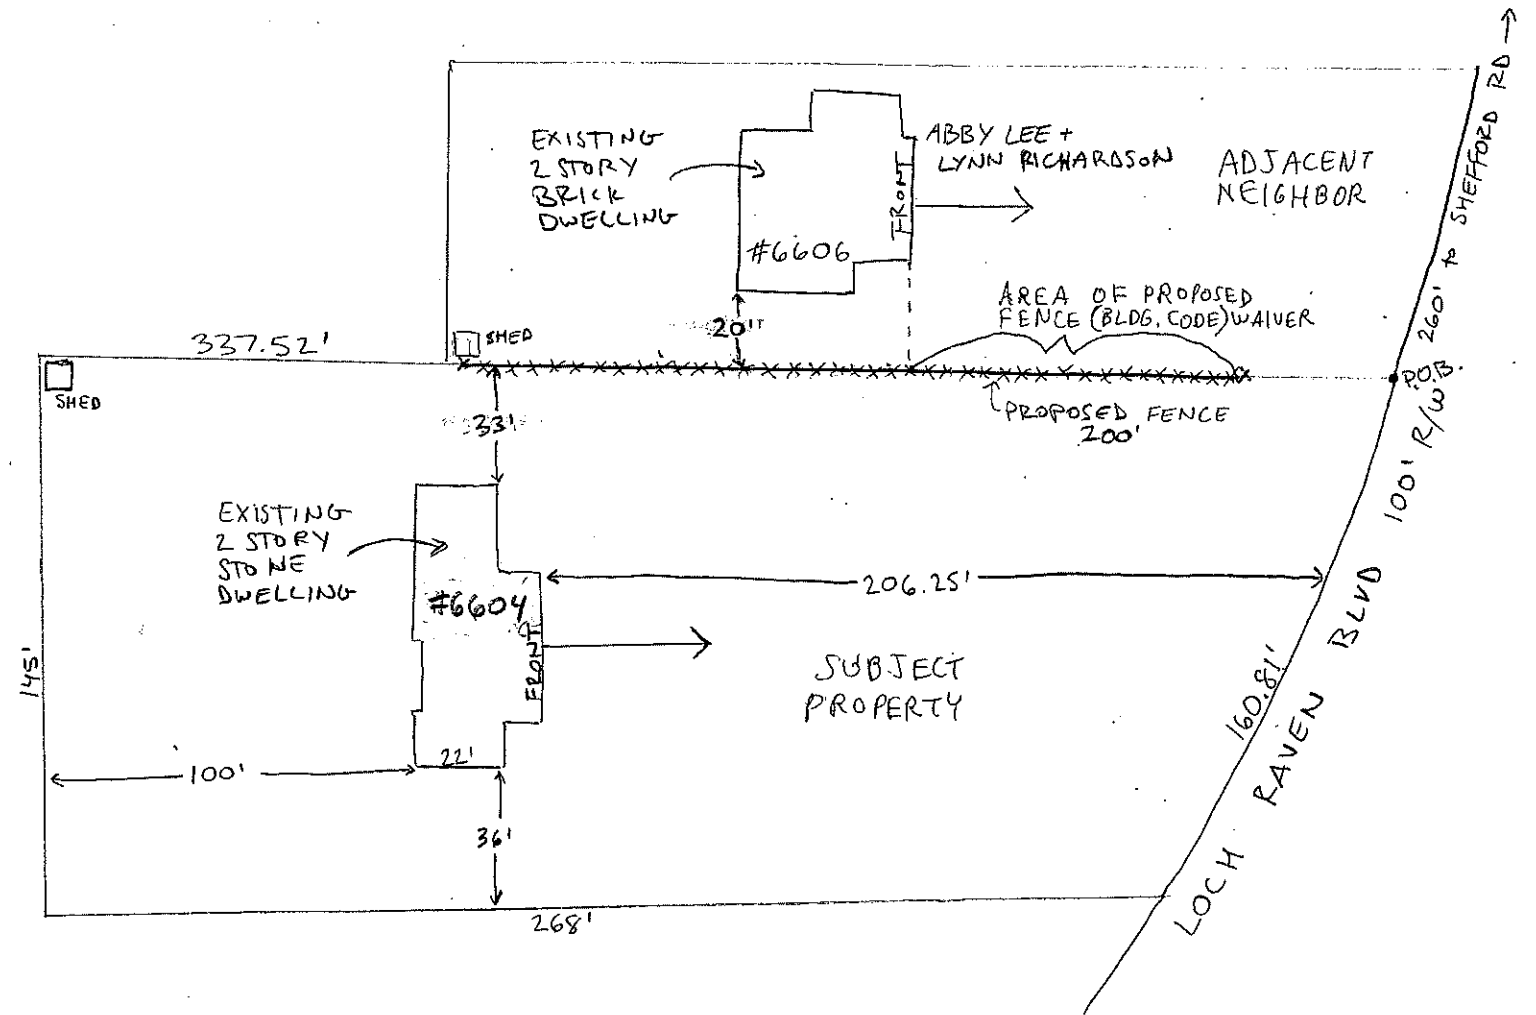 EXISTING
2 STORY
BRICK
DWELLING
#6606
FRONT
ABBY LEE +
LYNN RICHARDSON
ADJACENT
NEIGHBOR
260' to SHEFFORD RD →
AREA OF PROPOSED
FENCE (BLDG. CODE) WAIVER
20'
SHED
337.52'
SHED
P.O.B.
PROPOSED FENCE
200'
33'
EXISTING
2 STORY
STONE
DWELLING
#6604
FRONT
206.25'
SUBJECT
PROPERTY
145'
100'
22'
36'
268'
160.81'
LOCH RAVEN BLVD 100' R/W